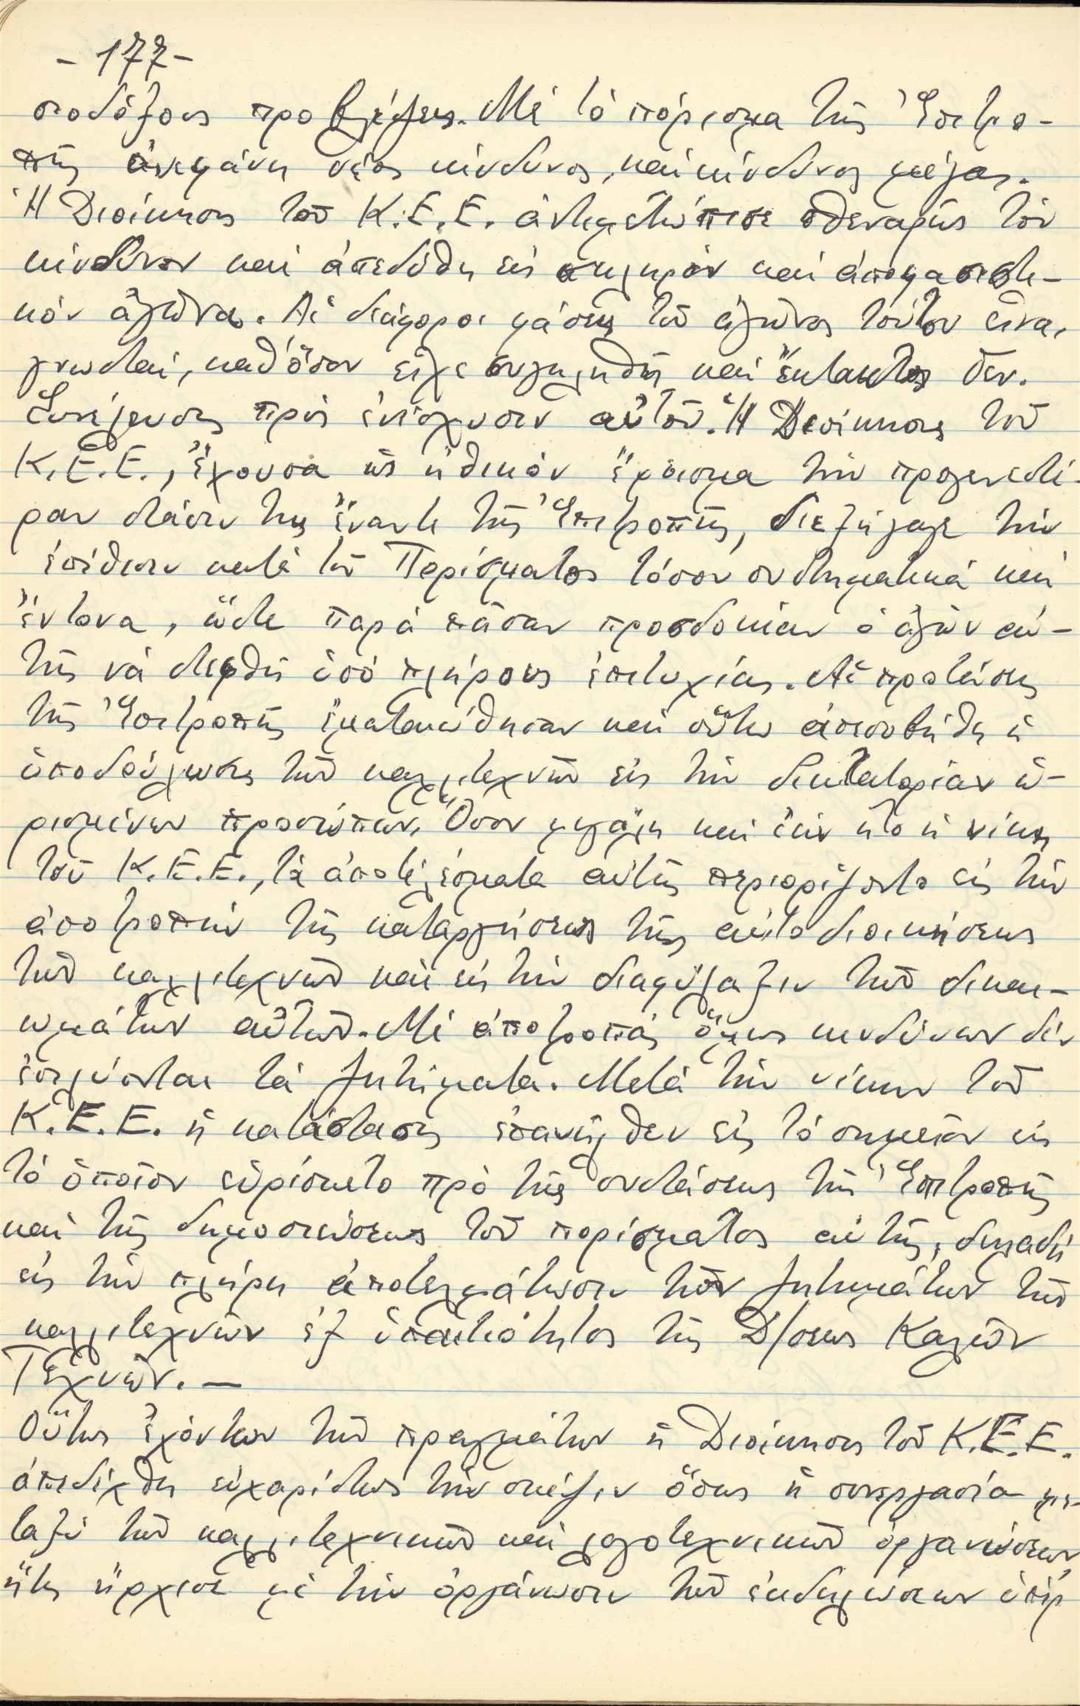 - 177 -
σιοδόξους προβλέψεις. Μέ τό πόρισμα τῆς Ἐπιτρο-
πῆς ἀνεφάνη νέος κίνδυνος, καί κίνδυνος μέγας.
Ἡ Διοίκησις τοῦ Κ.Ε.Ε. ἀντιμετώπισε σθεναρῶς τόν
κίνδυνον καί ἀπεδύθη εἰς σκληρόν καί ἀποφασιστι-
κόν ἀγῶνα. Αἱ διάφοροι φάσεις τοῦ ἀγῶνος τούτου εἶναι
γνωσταί, καθ' ὅσον εἶχε συγκληθῆ καί ἔκτακτος Γεν.
Συνέλευσις πρός ἐνίσχυσιν αὐτοῦ. Ἡ Διοίκησις τοῦ
Κ.Ε.Ε., ἔχουσα ὡς ἠθικόν ἔρεισμα τήν προγενεστέ-
ραν στάσιν της ἔναντι τῆς Ἐπιτροπῆς, διεξήγαγε τήν
ἐπίθεσιν κατά τοῦ Πορίσματος τόσον συστηματικά καί
ἔντονα, ὥστε παρά πᾶσαν προσδοκίαν ὁ ἀγών αὐ-
τῆς νά στεφθῆ ὑπό πλήρους ἐπιτυχίας. Αἱ προτάσεις
τῆς Ἐπιτροπῆς ἐματαιώθησαν καί οὕτω ἀπεσοβήθη ἡ
ὑποδούλωσις τῶν καλλιτεχνῶν εἰς τήν δικτατορίαν ὡ-
ρισμένων προσώπων. Ὅσον μεγάλη καί ἐάν ἦτο ἡ νίκη
τοῦ Κ.Ε.Ε., τά ἀποτελέσματα αὐτῆς περιορίζοντο εἰς τήν
ἀποτροπήν τῆς καταργήσεως τῆς αὐτοδιοικήσεως
τῶν καλλιτεχνῶν καί εἰς τήν διαφύλαξιν τῶν δικαι-
ωμάτων αὐτῶν. Μέ ἀποτροπάς ὅμως κινδύνων δέν
ἐπιλύονται τά ζητήματα. Μετά τήν νίκην τοῦ
Κ.Ε.Ε. ἡ κατάστασις ἐπανῆλθεν εἰς τό σημεῖον εἰς
τό ὁποῖον εὑρίσκετο πρό τῆς συστάσεως τῆς Ἐπιτροπῆς
καί τῆς δημοσιεύσεως τοῦ πορίσματος αὐτῆς, δηλαδή
εἰς τήν πλήρη ἀποτελμάτωσιν τῶν ζητημάτων τῶν
καλλιτεχνῶν ἐξ ὑπαιτιότητος τῆς Δ/σεως Καλῶν
Τεχνῶν. —
Οὕτως ἐχόντων τῶν πραγμάτων ἡ Διοίκησις τοῦ Κ.Ε.Ε.
ἀπεδέχθη εὐχαρίστως τήν σκέψιν ὅπως ἡ συνεργασία με-
ταξύ τῶν καλλιτεχνικῶν καί λογοτεχνικῶν ὀργανώσεων
ἥτις ἤρχισε μέ τήν ὀργάνωσιν τῶν ἐκδηλώσεων ὑπέρ